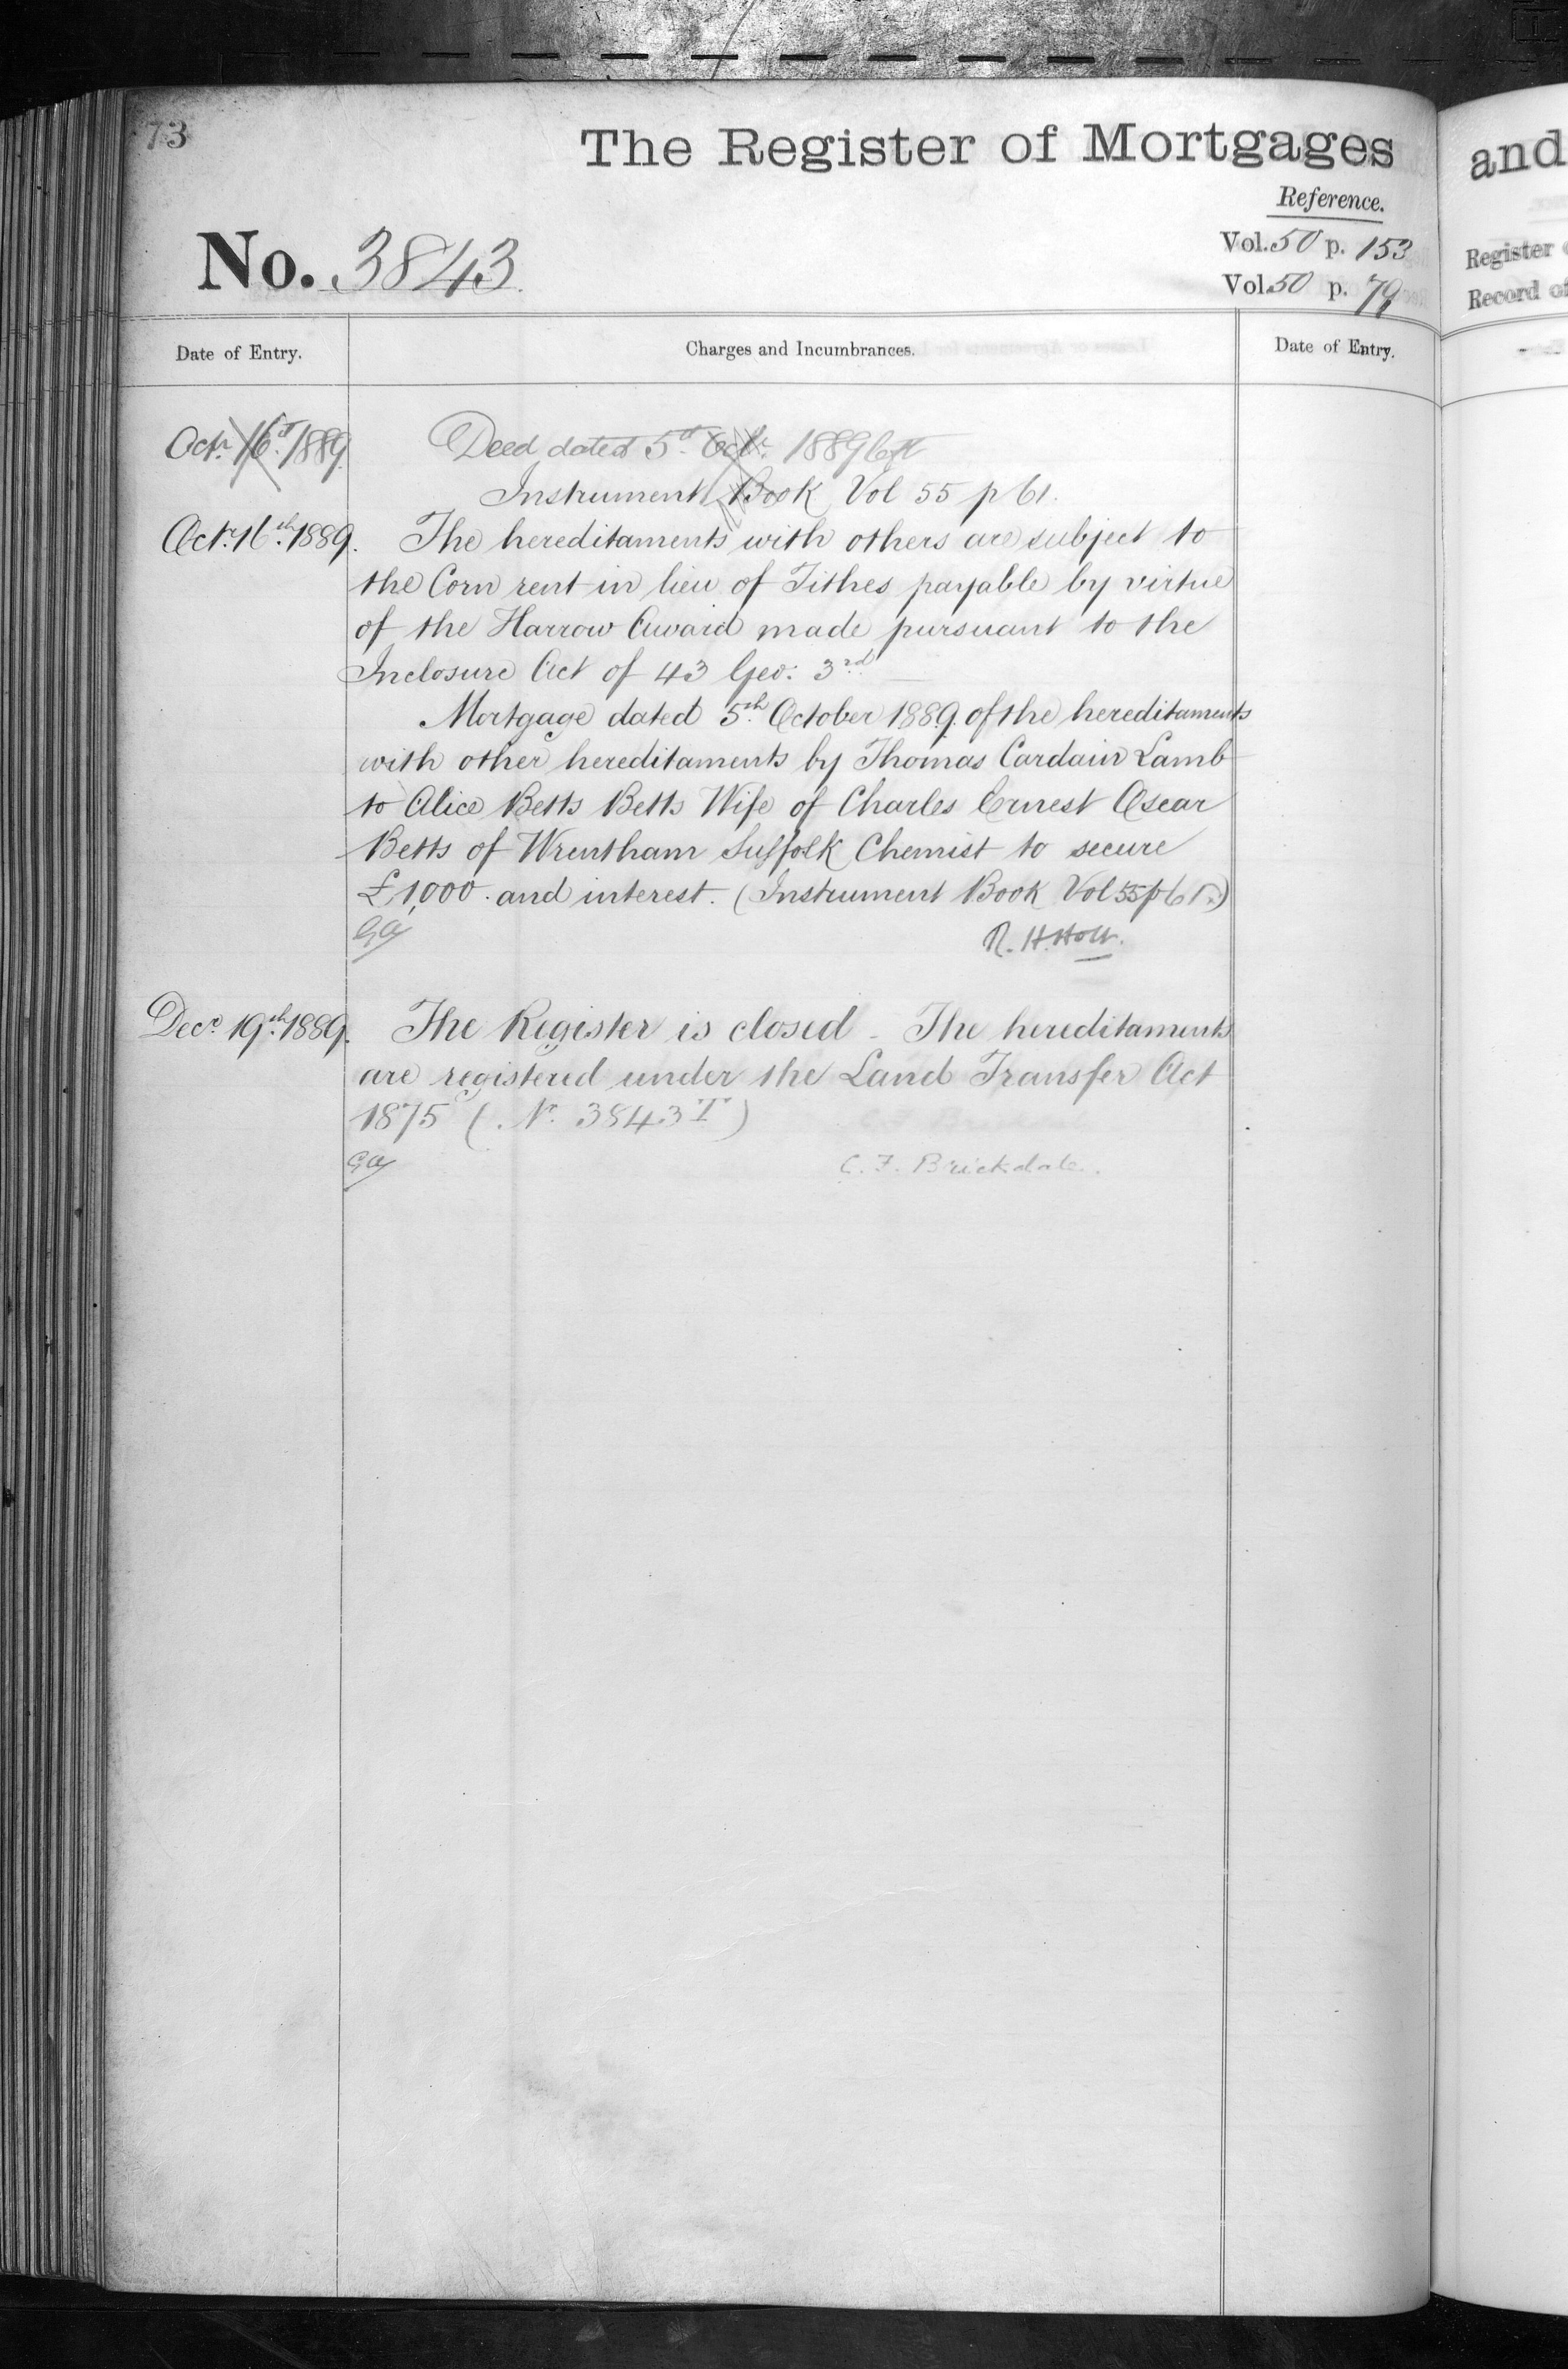 73
The Register of Mortgages
and
Reference.
No. 3843
Vol. 50 p. 153
Register
Vol. 50 p. 79
Record of
Date of Entry.
Charges and Incumbrances.
Date of Entry.
Octr. 16th 1889. Deed dated 5th Octr. 1889
Instrument Book Vol 55 p 61.
Octr. 16th 1889. The hereditaments with others are subject to
the Corn rent in lieu of Tithes payable by virtue
of the Harrow Award made pursuant to the
Inclosure Act of 43 Geo: 3rd
Mortgage dated 5th October 1889. of the hereditaments
with other hereditaments by Thomas Cardain Lamb
to Alice Betts Betts Wife of Charles Ernest Oscar
Betts of Wrentham Suffolk Chemist to secure
£1,000. and interest. (Instrument Book Vol 55 p 61.)
R. H. Holt.
Decr. 19th 1889. The Register is closed - The hereditaments
are registered under the Land Transfer Act
1875 (No. 3843 T)
C. F. Brickdale.